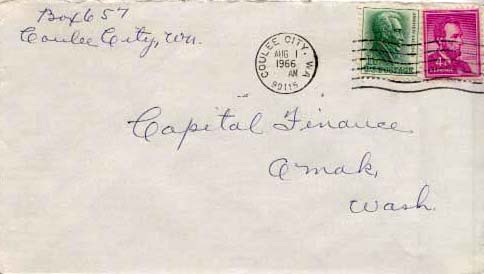 Box 657
Coulee City, Wn.
COULEE CITY, WA
AUG 1
1966
AM
99115
U.S. POSTAGE
4¢
Capital Finance
Omak,
Wash.